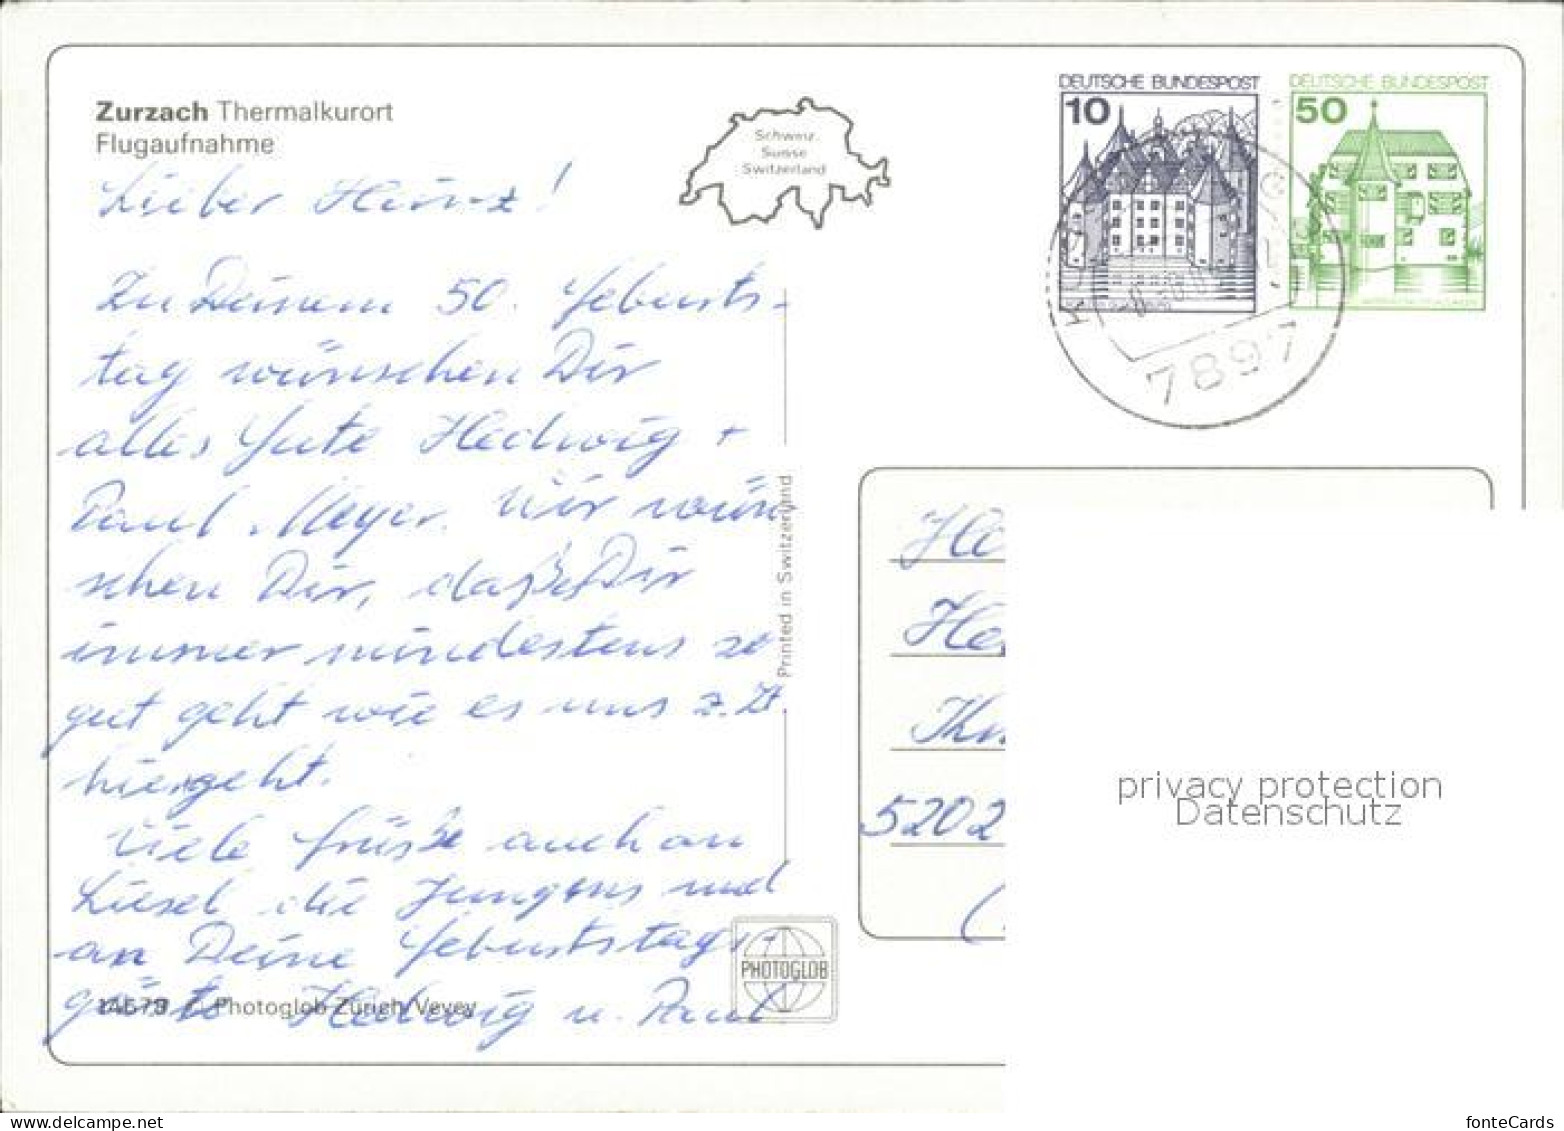 Zurzach Thermalkurort
Flugaufnahme
Schweiz
Suisse
Switzerland
DEUTSCHE BUNDESPOST
10
DEUTSCHE BUNDESPOST
50
7897
Lieber Heinz!
Zu Deinem 50. Geburts-
tag wünschen Dir
alles Gute Hedwig +
Paul Meyer. Wir wün
schen Dir, daß es Dir
immer mindestens so
gut geht wie es uns z. Zt.
hier geht.
Viele Grüße auch an
Liesel die Jungens und
an Deine Geburtstags-
gäste Hedwig u. Paul
Printed in Switzerland
PHOTOGLOB
Photoglob Zürich/Vevey
5202
privacy protection
Datenschutz
fonteCards